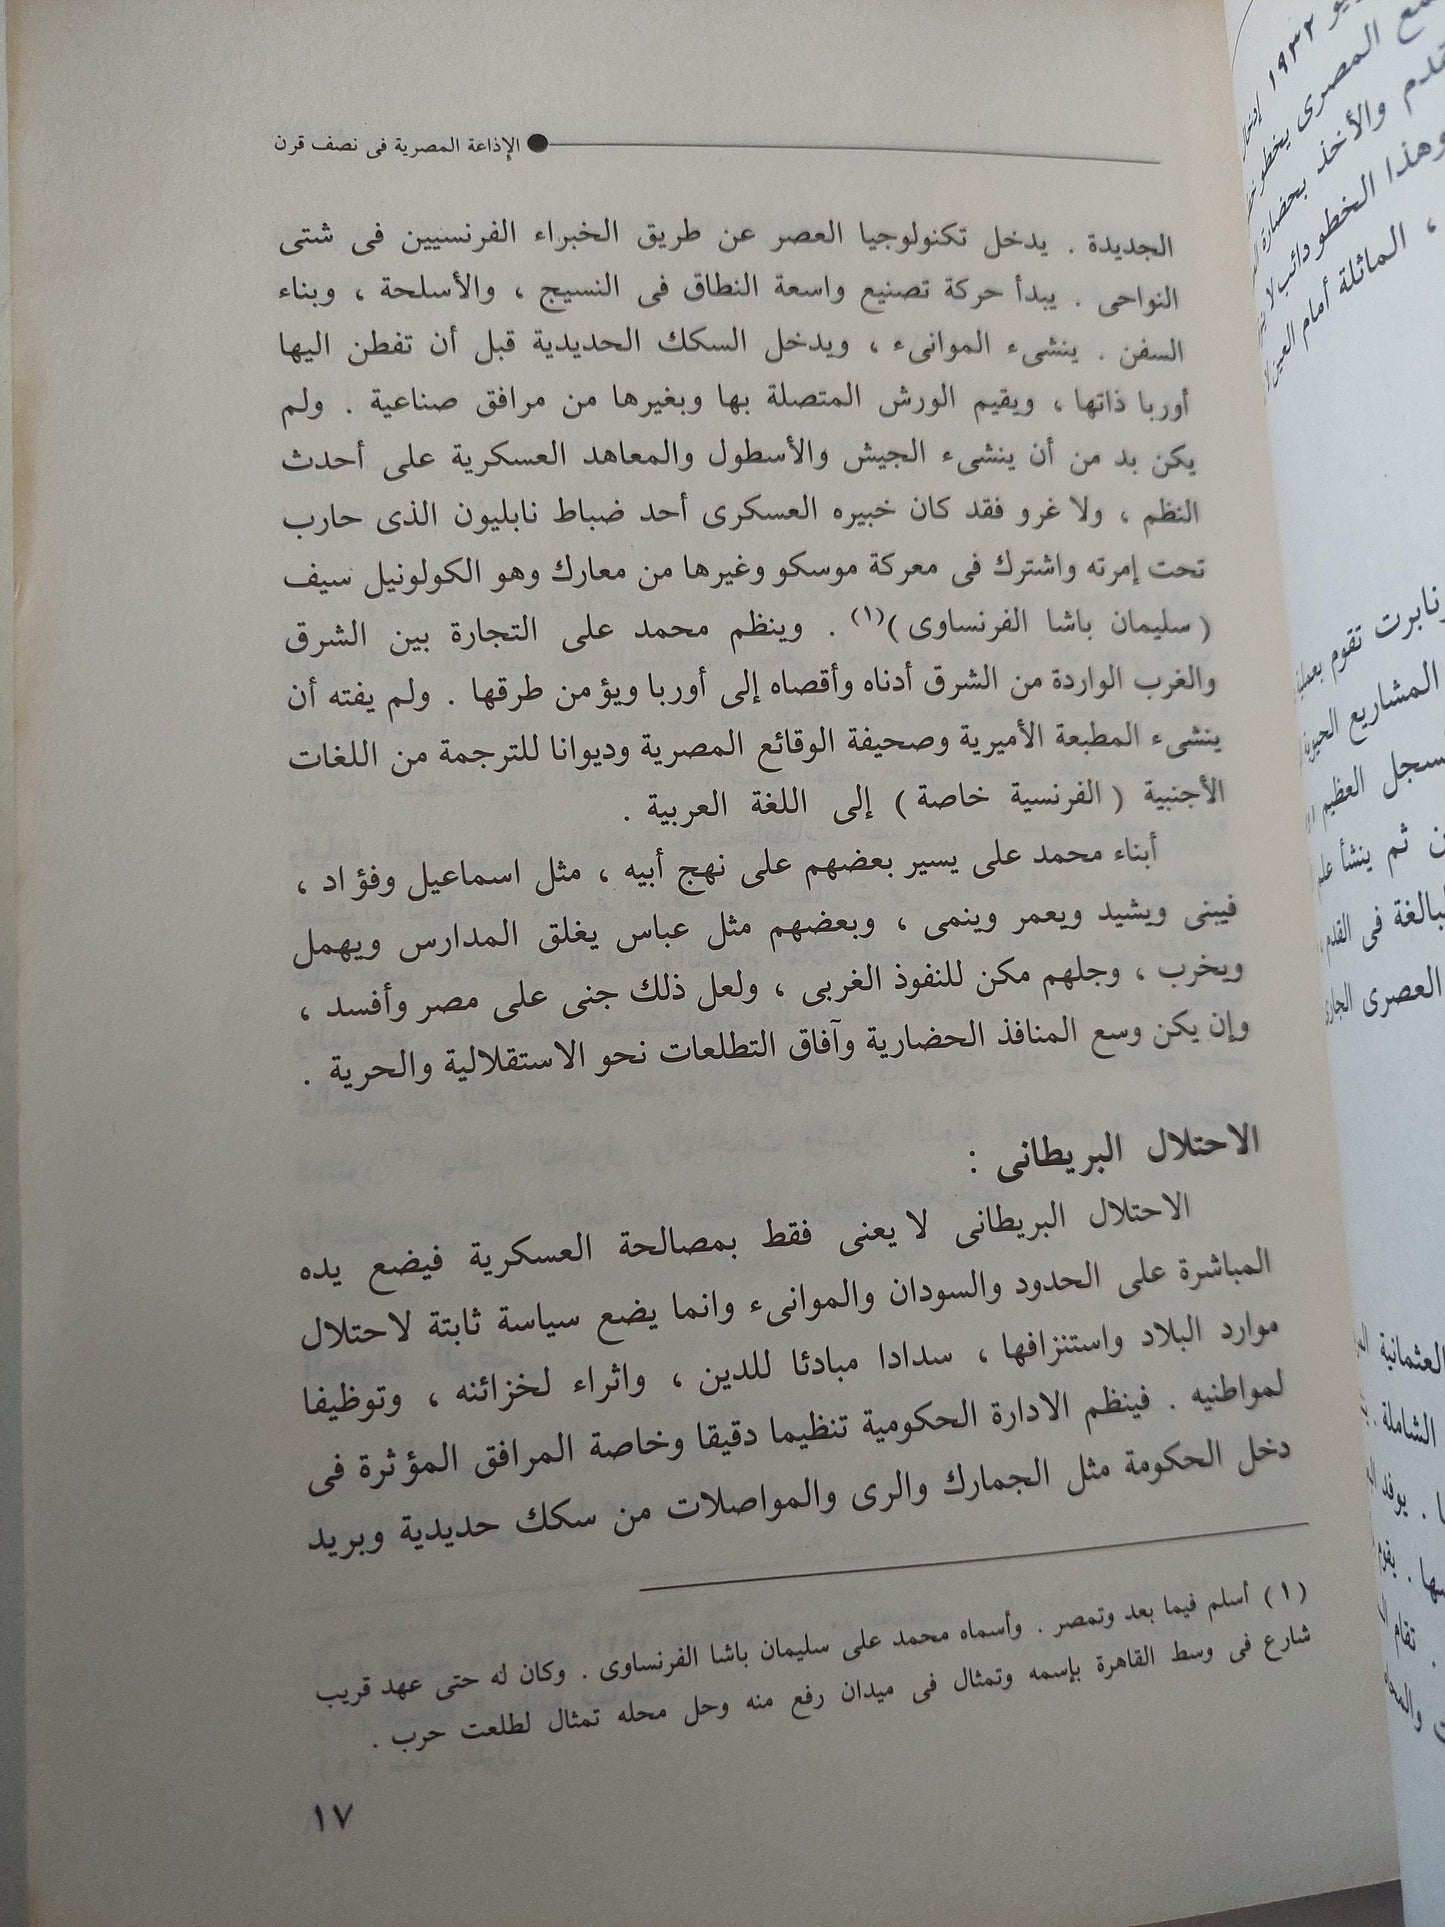 الإذاعة المصرية فى نصف قرن
الجديدة . يدخل تكنولوجيا العصر عن طريق الخبراء الفرنسيين فى شتى
النواحى . يبدأ حركة تصنيع واسعة النطاق فى النسيج ، والأسلحة ، وبناء
السفن . ينشىء الموانىء ، ويدخل السكك الحديدية قبل أن تفطن اليها
أوربا ذاتها ، ويقيم الورش المتصلة بها وبغيرها من مرافق صناعية . ولم
يكن بد من أن ينشىء الجيش والأسطول والمعاهد العسكرية على أحدث
النظم ، ولا غرو فقد كان خبيره العسكرى أحد ضباط نابليون الذى حارب
تحت إمرته واشترك فى معركة موسكو وغيرها من معارك وهو الكولونيل سيف
( سليمان باشا الفرنساوى )(١) . وينظم محمد على التجارة بين الشرق
والغرب الواردة من الشرق أدناه وأقصاه إلى أوربا ويؤمن طرقها . ولم يفته أن
ينشىء المطبعة الأميرية وصحيفة الوقائع المصرية وديوانا للترجمة من اللغات
الأجنبية ( الفرنسية خاصة ) إلى اللغة العربية .
أبناء محمد على يسير بعضهم على نهج أبيه ، مثل اسماعيل وفؤاد ،
فيبنى ويشيد ويعمر وينمى ، وبعضهم مثل عباس يغلق المدارس ويهمل
ويخرب ، وجلهم مكن للنفوذ الغربى ، ولعل ذلك جنى على مصر وأفسد ،
وإن يكن وسع المنافذ الحضارية وآفاق التطلعات نحو الاستقلالية والحرية .
الاحتلال البريطانى :
الاحتلال البريطانى لا يعنى فقط بمصالحة العسكرية فيضع يده
المباشرة على الحدود والسودان والموانىء وانما يضع سياسة ثابتة لاحتلال
موارد البلاد واستنزافها ، سدادا مبادئا للدين ، واثراء لخزائنه ، وتوظيفا
لمواطنيه . فينظم الادارة الحكومية تنظيما دقيقا وخاصة المرافق المؤثرة فى
دخل الحكومة مثل الجمارك والرى والمواصلات من سكك حديدية وبريد
( ١ ) أسلم فيما بعد وتمصر . وأسماه محمد على سليمان باشا الفرنساوى . وكان له حتى عهد قريب
شارع فى وسط القاهرة بإسمه وتمثال فى ميدان رفع منه وحل محله تمثال لطلعت حرب .
١٧
١٩٣٢
المصرى يخطو
والأخذ بحضارة
وهذا الخطو دائب لا
، الماثلة أمام العين
تقوم
المشاريع الحيوية
العظيم
ثم ينشأ
فى القدم
العصرى
العثمانية
الشاملة .
. يوفد
. يقوم
. تقام